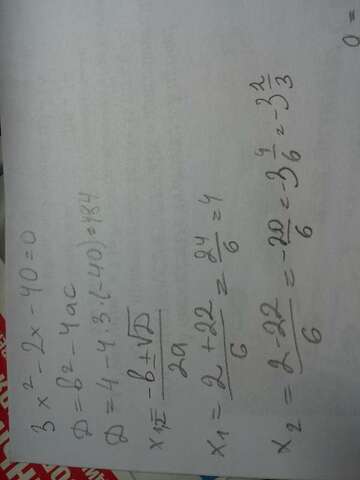 3x² - 2x - 40 = 0
D = b² - 4ac
D = 4 - 4·3·(-40) = 484
x₁,₂ = (-b ± √D)/2a
x₁ = (2 + 22)/6 = 24/6 = 4
x₂ = (2 - 22)/6 = -20/6 = -3 4/6 = -3 2/3
0 =